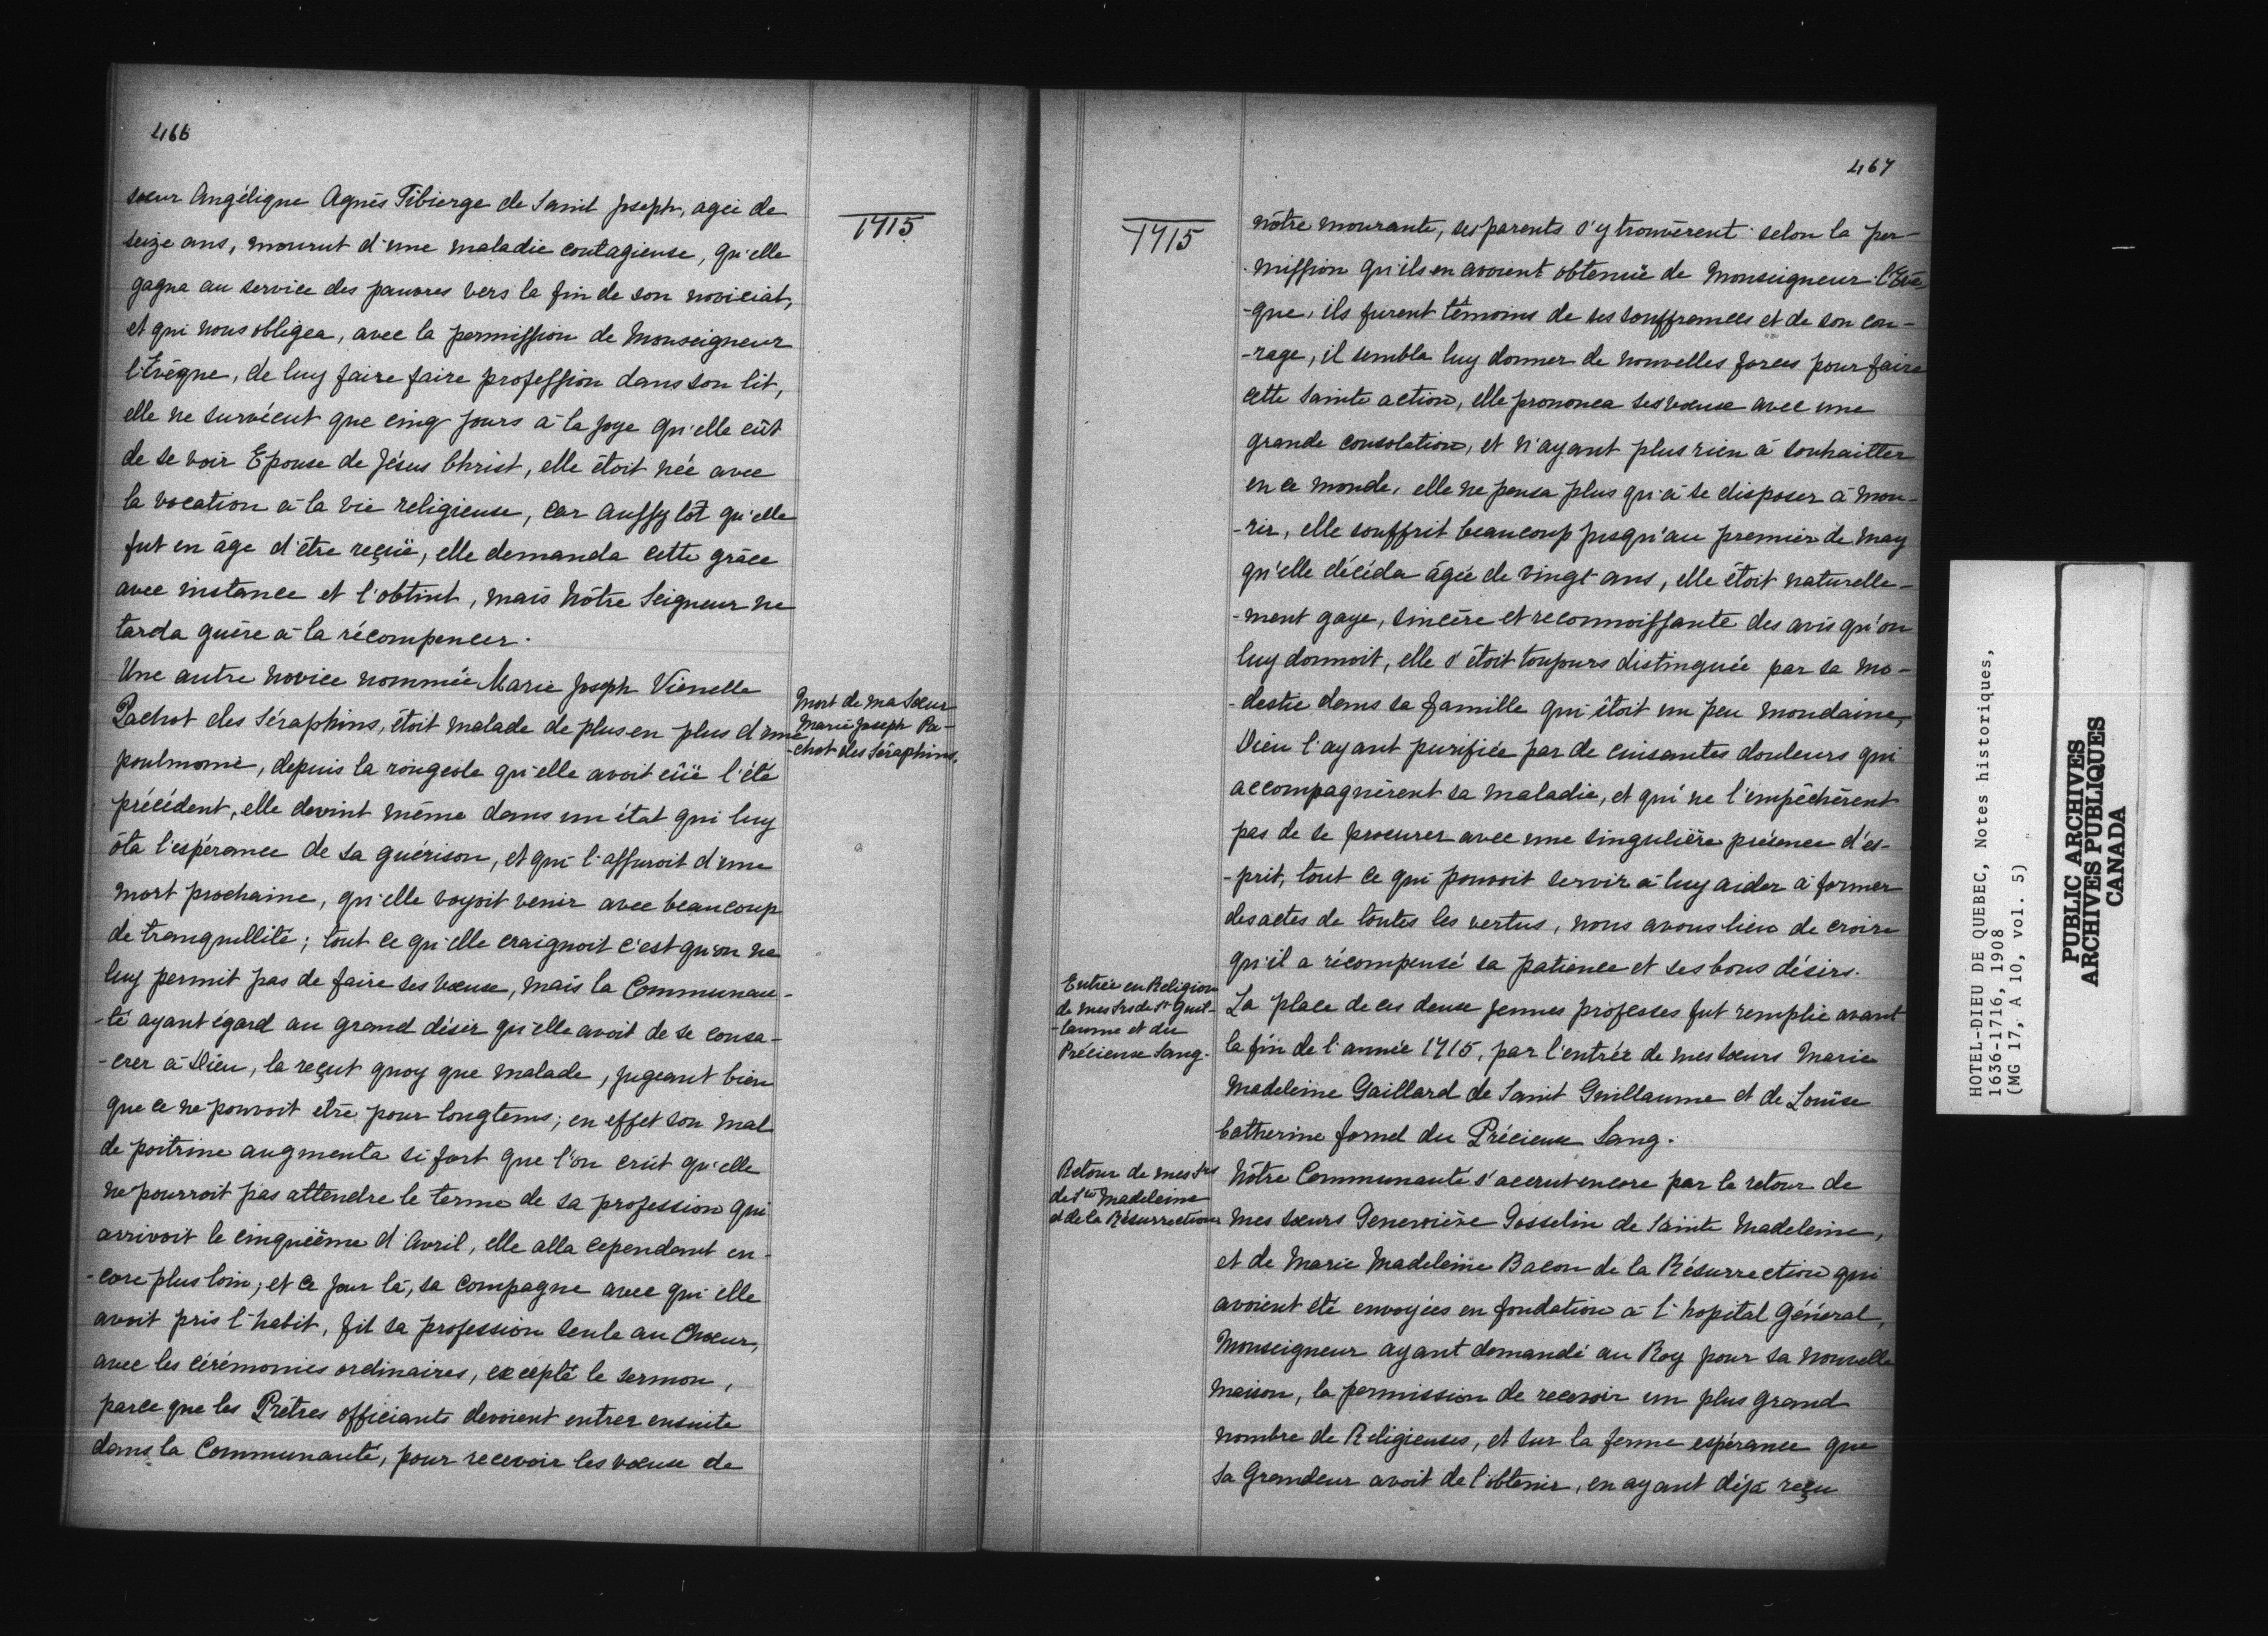 466
1715
sœur Angélique Agnès Tibierge de Saint Joseph, agée de
seize ans, mourut d'une maladie contagieuse, qu'elle
gagna au service des pauvres vers la fin de son noviciat,
et qui nous obligea, avec la permission de Monseigneur
l'Evêque, de luy faire faire profession dans son lit,
elle ne survécut que cinq jours à la joye qu'elle eût
de se voir Epouse de Jésus Christ, elle étoit née avec
la vocation à la vie religieuse, car aussytôt qu'elle
fut en âge d'être reçuë, elle demanda cette grâce
avec instance et l'obtint, mais Nôtre Seigneur ne
tarda guère à la récompencer.
Une autre novice nommée Marie Joseph Viennelle
Pachot des Séraphins, étoit malade de plus en plus d'une
poulmonie, depuis la rougeole qu'elle avoit eûë l'été
précédent, elle devint même dans un état qui luy
ôta l'espérance de sa guérison, et qui l'assuroit d'une
mort prochaine, qu'elle voyoit venir avec beaucoup
de tranquillité; tout ce qu'elle craignoit c'est qu'on ne
luy permit pas de faire ses vœux, mais la Communau-
-té ayant égard au grand désir qu'elle avoit de se consa-
-crer à Dieu, la reçut quoy que malade, jugeant bien
que ce ne pouvoit etrè pour longtems; en effet son mal
de poitrine augmenta si fort que l'on crût qu'elle
ne pourroit pas attendre le terme de sa profession qui
arrivoit le cinquième d'Avril, elle alla cependant en-
-core plus loin; et ce jour là, sa compagne avec qui elle
avoit pris l'habit, fit sa profession seule au Chœur,
avec les cérémonies ordinaires, excepté le sermon,
parce que les Prêtres officiants devoient entrer ensuite
dans la Communauté, pour recevoir les vœux de
Mort de ma Sœur
Marie Joseph Pa-
-chot des Séraphins.
467
1715
nôtre mourante, ses parents s'y trouvèrent selon la per-
-mission qu'ils en avoient obtenuë de Monseigneur l'Evê-
-que, ils furent témoins de ses souffrances et de son cou-
-rage, il sembla luy donner de nouvelles forces pour faire
cette sainte action, elle prononca ses vœux avec une
grande consolation, et n'ayant plus rien à souhaitter
en ce monde, elle ne pensa plus qu'à se disposer à mou-
-rir, elle souffrit beaucoup jusqu'au premier de may
qu'elle décéda âgée de vingt ans, elle étoit naturelle-
-ment gaye, sincère et reconnoissante des avis qu'on
luy donnoit, elle s'étoit toujours distinguée par sa mo-
-destie dans sa famille qui étoit un peu mondaine,
Dieu l'ayant purifiée par de cuisantes douleurs qui
accompagnèrent sa maladie, et qui ne l'empêchèrent
pas de se procurer avec une singulière présence d'es-
-prit, tout ce qui pouvoit servir à luy aider à former
des actes de toutes les vertus, nous avons lieu de croire
qu'il a récompensé sa patience et ses bons désirs.
Entrée en Religion
de mes Srs de St Guil-
-laume et du
Précieux Sang.
La place de ces deux jeunes professes fut remplie avant
la fin de l'année 1715, par l'entrée de mes sœurs Marie
Madeleine Gaillard de Saint Guillaume et de Louïse
Catherine fornel du Précieux Sang.
Retour de mes Srs
de Ste Madeleine
et de la Résurrection
Nôtre Communauté s'accrut encore par le retour de
mes sœurs Geneviève Gosselin de Sainte Madeleine,
et de Marie Madeleine Bacon de la Résurrection qui
avoient été envoyées en fondation à l'hopital Général,
Monseigneur ayant demandé au Roy pour sa nouvelle
maison, la permission de recevoir un plus grand
nombre de Religieuses, et sur la ferme espérance que
sa Grandeur avoit de l'obtenir, en ayant déjà reçu
HOTEL-DIEU DE QUEBEC, Notes historiques,
1636-1716, 1908
(MG 17, A 10, vol. 5)
PUBLIC ARCHIVES
ARCHIVES PUBLIQUES
CANADA